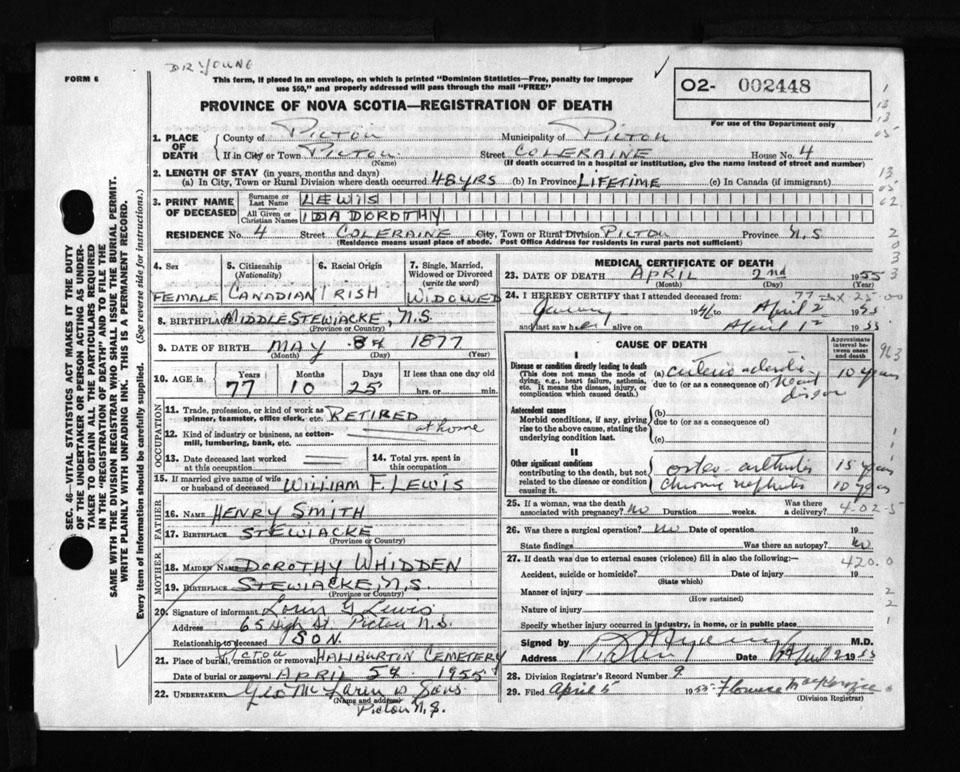 DR. YOUNG
FORM 6
This form, if placed in an envelope, on which is printed "Dominion Statistics—Free, penalty for improper
use $50," and properly addressed will pass through the mail "FREE"
PROVINCE OF NOVA SCOTIA—REGISTRATION OF DEATH
O2- 002448
For use of the Department only
1. PLACE OF DEATH
County of Pictou Municipality of Pictou
If in City or Town Pictou. Street COLERAINE House No. 4
(Name) (If death occurred in a hospital or institution, give the name instead of street and number)
2. LENGTH OF STAY (in years, months and days)
(a) In City, Town or Rural Division where death occurred 48 YRS (b) In Province LIFETIME (c) In Canada (if immigrant)
3. PRINT NAME OF DECEASED
Surname or Last Name LEWIS
All Given or Christian Names IDA DOROTHY
RESIDENCE No. 4 Street COLERAINE City, Town or Rural Division PICTOU Province N.S
(Residence means usual place of abode. Post Office Address for residents in rural parts not sufficient)
4. Sex FEMALE
5. Citizenship (Nationality) CANADIAN
6. Racial Origin IRISH
7. Single, Married, Widowed or Divorced (write the word) WIDOWED
8. BIRTHPLACE MIDDLE STEWIACKE, N.S.
(Province or Country)
9. DATE OF BIRTH MAY 8th 1877
(Month) (Day) (Year)
10. AGE in Years Months Days If less than one day
77 10 25 hrs. or min.
OCCUPATION
11. Trade, profession, or kind of work as spinner, teamster, office clerk, etc. RETIRED
at home
12. Kind of industry or business, as cotton-mill, lumbering, bank, etc.
13. Date deceased last worked at this occupation
14. Total yrs. spent in this occupation
15. If married give name of wife or husband of deceased WILLIAM F. LEWIS
FATHER
16. NAME HENRY SMITH
17. BIRTHPLACE STEWIACKE
(Province or Country)
MOTHER
18. MAIDEN NAME DOROTHY WHIDDEN
19. BIRTHPLACE STEWIACKE, N.S.
(Province or Country)
20. Signature of informant Lorin G Lewis
Address 65 High St. Pictou N.S.
Relationship to deceased SON.
21. Place of burial, cremation or removal Pictou HALIBURTIN CEMETERY
Date of burial or removal APRIL 5th 1955
22. UNDERTAKER Geo McLaren & Sons
(Name and address)
Pictou N.S.
MEDICAL CERTIFICATE OF DEATH
23. DATE OF DEATH APRIL 2nd 1955
(Month) (Day) (Year)
24. I HEREBY CERTIFY that I attended deceased from:
January to April 2 1955
and last saw her alive on April 1st 1955
CAUSE OF DEATH
Approximate interval between onset and death
I
Disease or condition directly leading to death
(This does not mean the mode of dying, e.g., heart failure, asthenia, etc. It means the disease, injury, or complication which caused death.)
(a) heart 10 years
due to (or as a consequence of)
Antecedent causes
Morbid conditions, if any, giving rise to the above cause, stating the underlying condition last.
(b)
due to (or as a consequence of)
(c)
II
Other significant conditions
contributing to the death, but not related to the disease or condition causing it.
osteo-arthritis 15 years
chronic nephritis 10 years
25. If a woman, was the death associated with pregnancy? no Duration weeks. Was there a delivery?
26. Was there a surgical operation? no Date of operation 19
State findings Was there an autopsy? no
27. If death was due to external causes (violence) fill in also the following:—
420.0
Accident, suicide or homicide? Date of injury 19
(State which)
Manner of injury
(How sustained)
Nature of injury
Specify whether injury occurred in industry, in home, or in public place
Signed by M.D.
Address Date April 2 1955
28. Division Registrar's Record Number 9
29. Filed April 5 1955 Florence MacKenzie
(Division Registrar)
SEC. 46—VITAL STATISTICS ACT MAKES IT THE DUTY
OF THE UNDERTAKER OR PERSON ACTING AS UNDER-
TAKER TO OBTAIN ALL THE PARTICULARS REQUIRED
IN THE "REGISTRATION OF DEATH" AND TO FILE THE
SAME WITH THE DIVISION REGISTRAR WHO SHALL ISSUE THE BURIAL PERMIT.
WRITE PLAINLY WITH UNFADING INK. THIS IS A PERMANENT RECORD.
Every item of information should be carefully supplied. (See reverse side for instructions.)